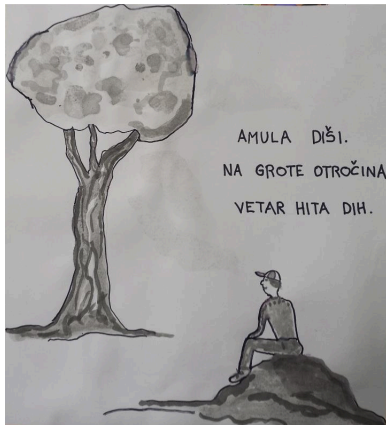 AMULA DIŠI.
NA GROTE OTROČINA
VETAR HITA DIH.